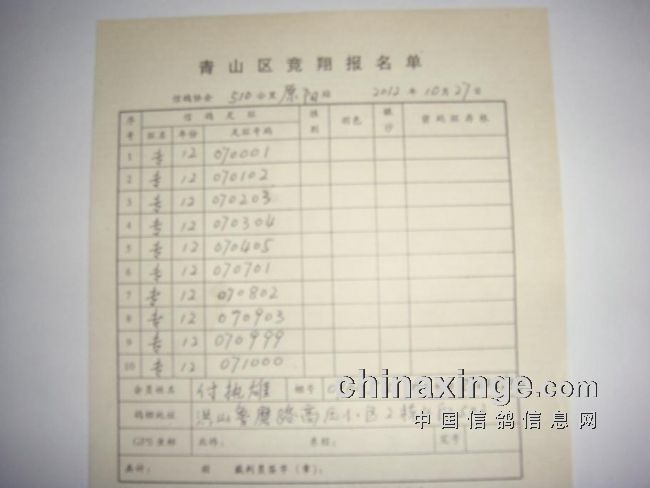 青山区竞翔报名单
信鸽协会 510公里 原阳站 2012年10月27日
序号 信鸽足环 性别 羽色 眼沙 密码组房栋
组名 年份 足环号码
1 专 12 070001
2 专 12 070102
3 专 12 070203
4 专 12 070304
5 专 12 070405
6 专 12 070701
7 专 12 070802
8 专 12 070903
9 专 12 070999
10 专 12 071000
会员姓名 付 雄 棚号
鸽棚地址 洪山鲁磨路高 小区2栋
GPS坐标 北纬: 东经:
共计: 羽 裁判员签字(章):
chinaxinge.com
中国信鸽信息网